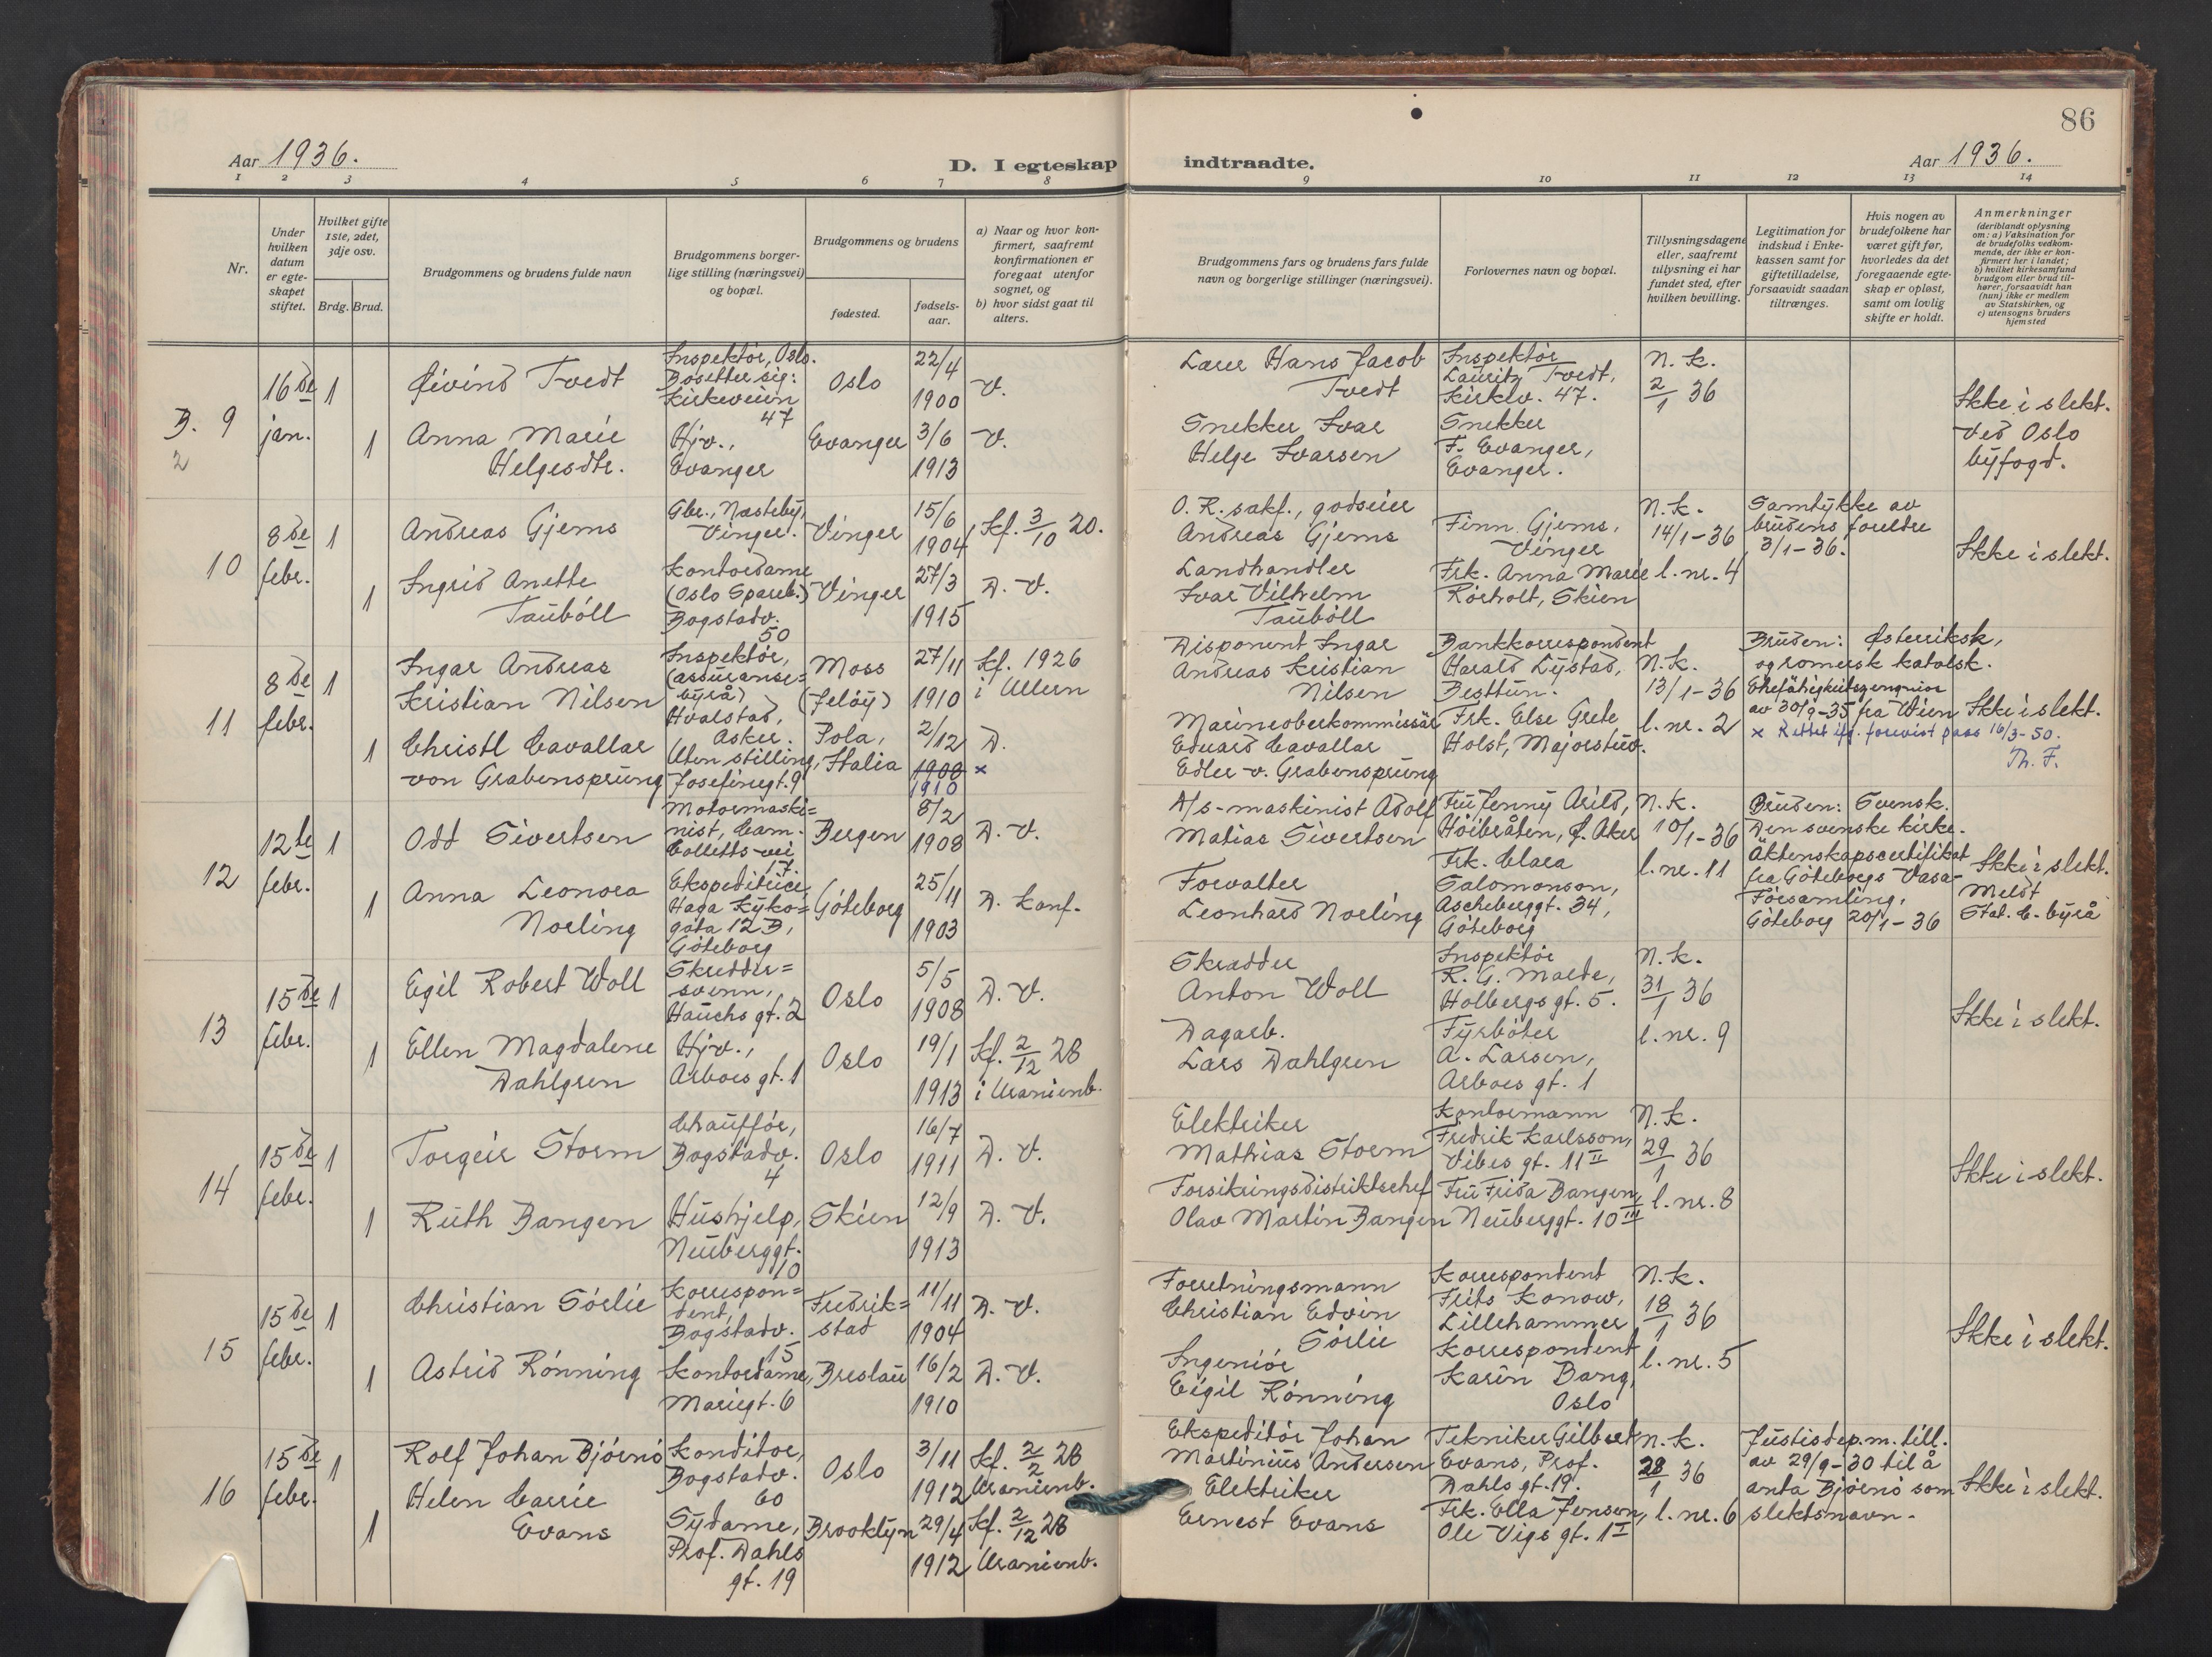 86
Aar 1936.
D. I egteskap indtraadte.
Aar 1936.
1 2 3 4 5 6 7 8 9 10 11 12 13 14
Nr.
Under hvilken datum er egteskapet stiftet.
Hvilket gifte 1ste, 2det, 3dje osv.
Brdg. Brud.
Brudgommens og brudens fulde navn
Brudgommens borgerlige stilling (næringsvei) og bopæl.
Brudgommens og brudens
fødested.
fødselsaar.
a) Naar og hvor konfirmert, saafremt konfirmationen er foregaat utenfor sognet, og
b) hvor sidst gaat til alters.
Brudgommens fars og brudens fars fulde navn og borgerlige stillinger (næringsvei).
Forlovernes navn og bopæl.
Tillysningsdagene eller, saafremt tillysning ei har fundet sted, efter hvilken bevilling.
Legitimation for indskud i Enkekassen samt for giftetilladelse, forsaavidt saadan tiltrænges.
Hvis nogen av brudefolkene har været gift før, hvorledes da det foregaaende egteskap er opløst, samt om lovlig skifte er holdt.
Anmerkninger
(deriblandt oplysning om: a) Vaksination for de brudefolks vedkommende, der ikke er konfirmert her i landet;
b) hvilket kirkesamfund brudgom eller brud tilhører, forsaavidt han (hun) ikke er medlem av Statskirken, og
c) utensogns bruders hjemsted
B. 9
2
16de jan.
1
Øivind Tvedt
Inspektør, Oslo.
Bosetter sig:
Kirkeveien
47
Oslo
22/4
1900
V.
Lærer Hans Jacob
Tvedt
Inspektør
Lauritz Tvedt,
Kirkev. 47.
N. K.
2/1 36
Ikke i slekt.
Ved Oslo
byfogd.
1
Anna Marie
Helgesdtr.
Hjv.,
Evanger
Evanger
3/6
1913
V.
Snekker Ivar
Helge Ivarsen
Snekker
F. Evanger,
Evanger.
10
8de febr.
1
Andreas Gjems
Gbr., Næsteby,
Vinger.
Vinger
15/6
1904
Kf. 3/10 20.
O. R. sakf., godseier
Andreas Gjems
Finn Gjems,
Vinger
N. K.
14/1-36
l. nr. 4
Samtykke av
brudens foreldre
3/1-36.
Ikke i slekt.
1
Ingrid Anette
Taubøll
Kontordame
(Oslo Spareb.)
Bogstadv.
50
Vinger
27/3
1915
D. V.
Landhandler
Ivar Vilhelm
Taubøll
Frk. Anna Marie
Rørholt, Skien
11
8de febr.
1
Ingar Andreas
Kristian Nilsen
Inspektør,
(assuranse=
byrå)
Hvalstad,
Asker.
Moss
(Jeløy)
27/11
1910
Kf. 1926
i Ullern
Disponent Ingar
Andreas Kristian
Nilsen
Bankkorrespondent
Harald Lystad,
Besttun.
N. K.
13/1-36
l. nr. 2
Bruden: Østerriksk,
og romersk katolsk.
Ehefähigkeitszeugnis
av 30/9-35 fra Wien
x Rettet ifg. forevist pass 16/3-50.
Th. F.
Ikke i slekt.
1
Christl Cavallar
von Grabensprung
Uten stilling,
Josefinegt. 9
Pola,
Italia
2/12
1908 x
1910
D.
Marineoberkommissär
Eduard Cavallar
Edler v. Grabensprung
Frk. Else Grete
Holst, Majorstuv.
12
12te febr.
1
Odd Sivertsen
Motormaski=
nist, Cam.
Colletts vei
17.
Bergen
8/2
1908
D. V.
A/s-maskinist Adolf
Matias Sivertsen
Fru Jenny Arild,
Høibråten, Ø. Aker
N. K.
10/1-36
l. nr. 11
Bruden: Svensk.
Den svenske kirke.
Äktenskapscertifikat
fra Göteborgs Vasa-
Församling,
Göteborg 20/1-36
Ikke i slekt.
Meldt
Stat. C. byrå
1
Anna Leonora
Norling
Ekspeditrice,
Haga Kyrko=
gata 12 B,
Göteborg
Göteborg
25/11
1903
D. Konf.
Forvalter
Leonhard Norling
Frk. Clara
Salomonson,
Ascheberggt. 34,
Göteborg
13
15de febr.
1
Egil Robert Woll
Skredder=
svenn,
Hauchs gt. 2
Oslo
5/5
1908
D. V.
Skrædder
Anton Woll
Inspektør
R. G. Marde,
Holbergs gt. 5.
N. K.
31/1 36
l. nr. 9
Ikke i slekt.
1
Ellen Magdalene
Dahlgren
Hjv.,
Arboes gt. 1
Oslo
19/1
1913
Kf. 2/12 28
i Uranienb.
Dagarb.
Lars Dahlgren
Fyrbøter
A. Larsen,
Arboes gt. 1
14
15de febr.
1
Torgeir Storm
Chauffør,
Bogstadv.
4
Oslo
16/7
1911
D. V.
Elektriker
Mathias Storm
Kontormann
Fredrik Karlsson,
Vibes gt. 11 II
N. K.
29/1 36
l. nr. 8
Ikke i slekt.
1
Ruth Bangen
Hushjelp,
Neuberggt.
10
Skien
12/9
1913
D. V.
Forsikringsdistriktschef
Olav Martin Bangen
Fru Frida Bangen,
Neuberggt. 10 III
15
15de febr.
1
Christian Sørlie
Korrespon=
dent,
Bogstadv.
15
Fredrik=
stad
11/11
1904
D. V.
Forretningsmann
Christian Edvin
Sørlie
Korrespondent
Frits Konow,
Lillehammer
N. K.
18/1 36
l. nr. 5
Ikke i slekt.
1
Astrid Rønning
Kontordame,
Mariegt. 6
Breslau
16/2
1910
D. V.
Ingeniør
Eigil Rønning
Korrespondent
Karin Bang,
Oslo
16
15de febr.
1
Rolf Johan Bjørnø
Konditor,
Bogstadv.
60
Oslo
3/11
1912
Kf. 2/2 28
Uranienb.
Ekspeditør Johan
Martinius Andersen
Tekniker Gilbert
Evans, Prof.
Dahls gt. 19.
N. K.
28/1 36
l. nr. 6
Justisdep.m. till.
av 29/9-30 til å
anta Bjørnø som
slektsnavn.
Ikke i slekt.
1
Helen Carrie
Evans
Sydame,
Prof. Dahls
gt. 19
Brooklyn
29/4
1912
Kf. 2/12 28
Uranienb.
Elektriker
Ernest Evans
Frk. Ella Jensen,
Ole Vigs gt. 1 I